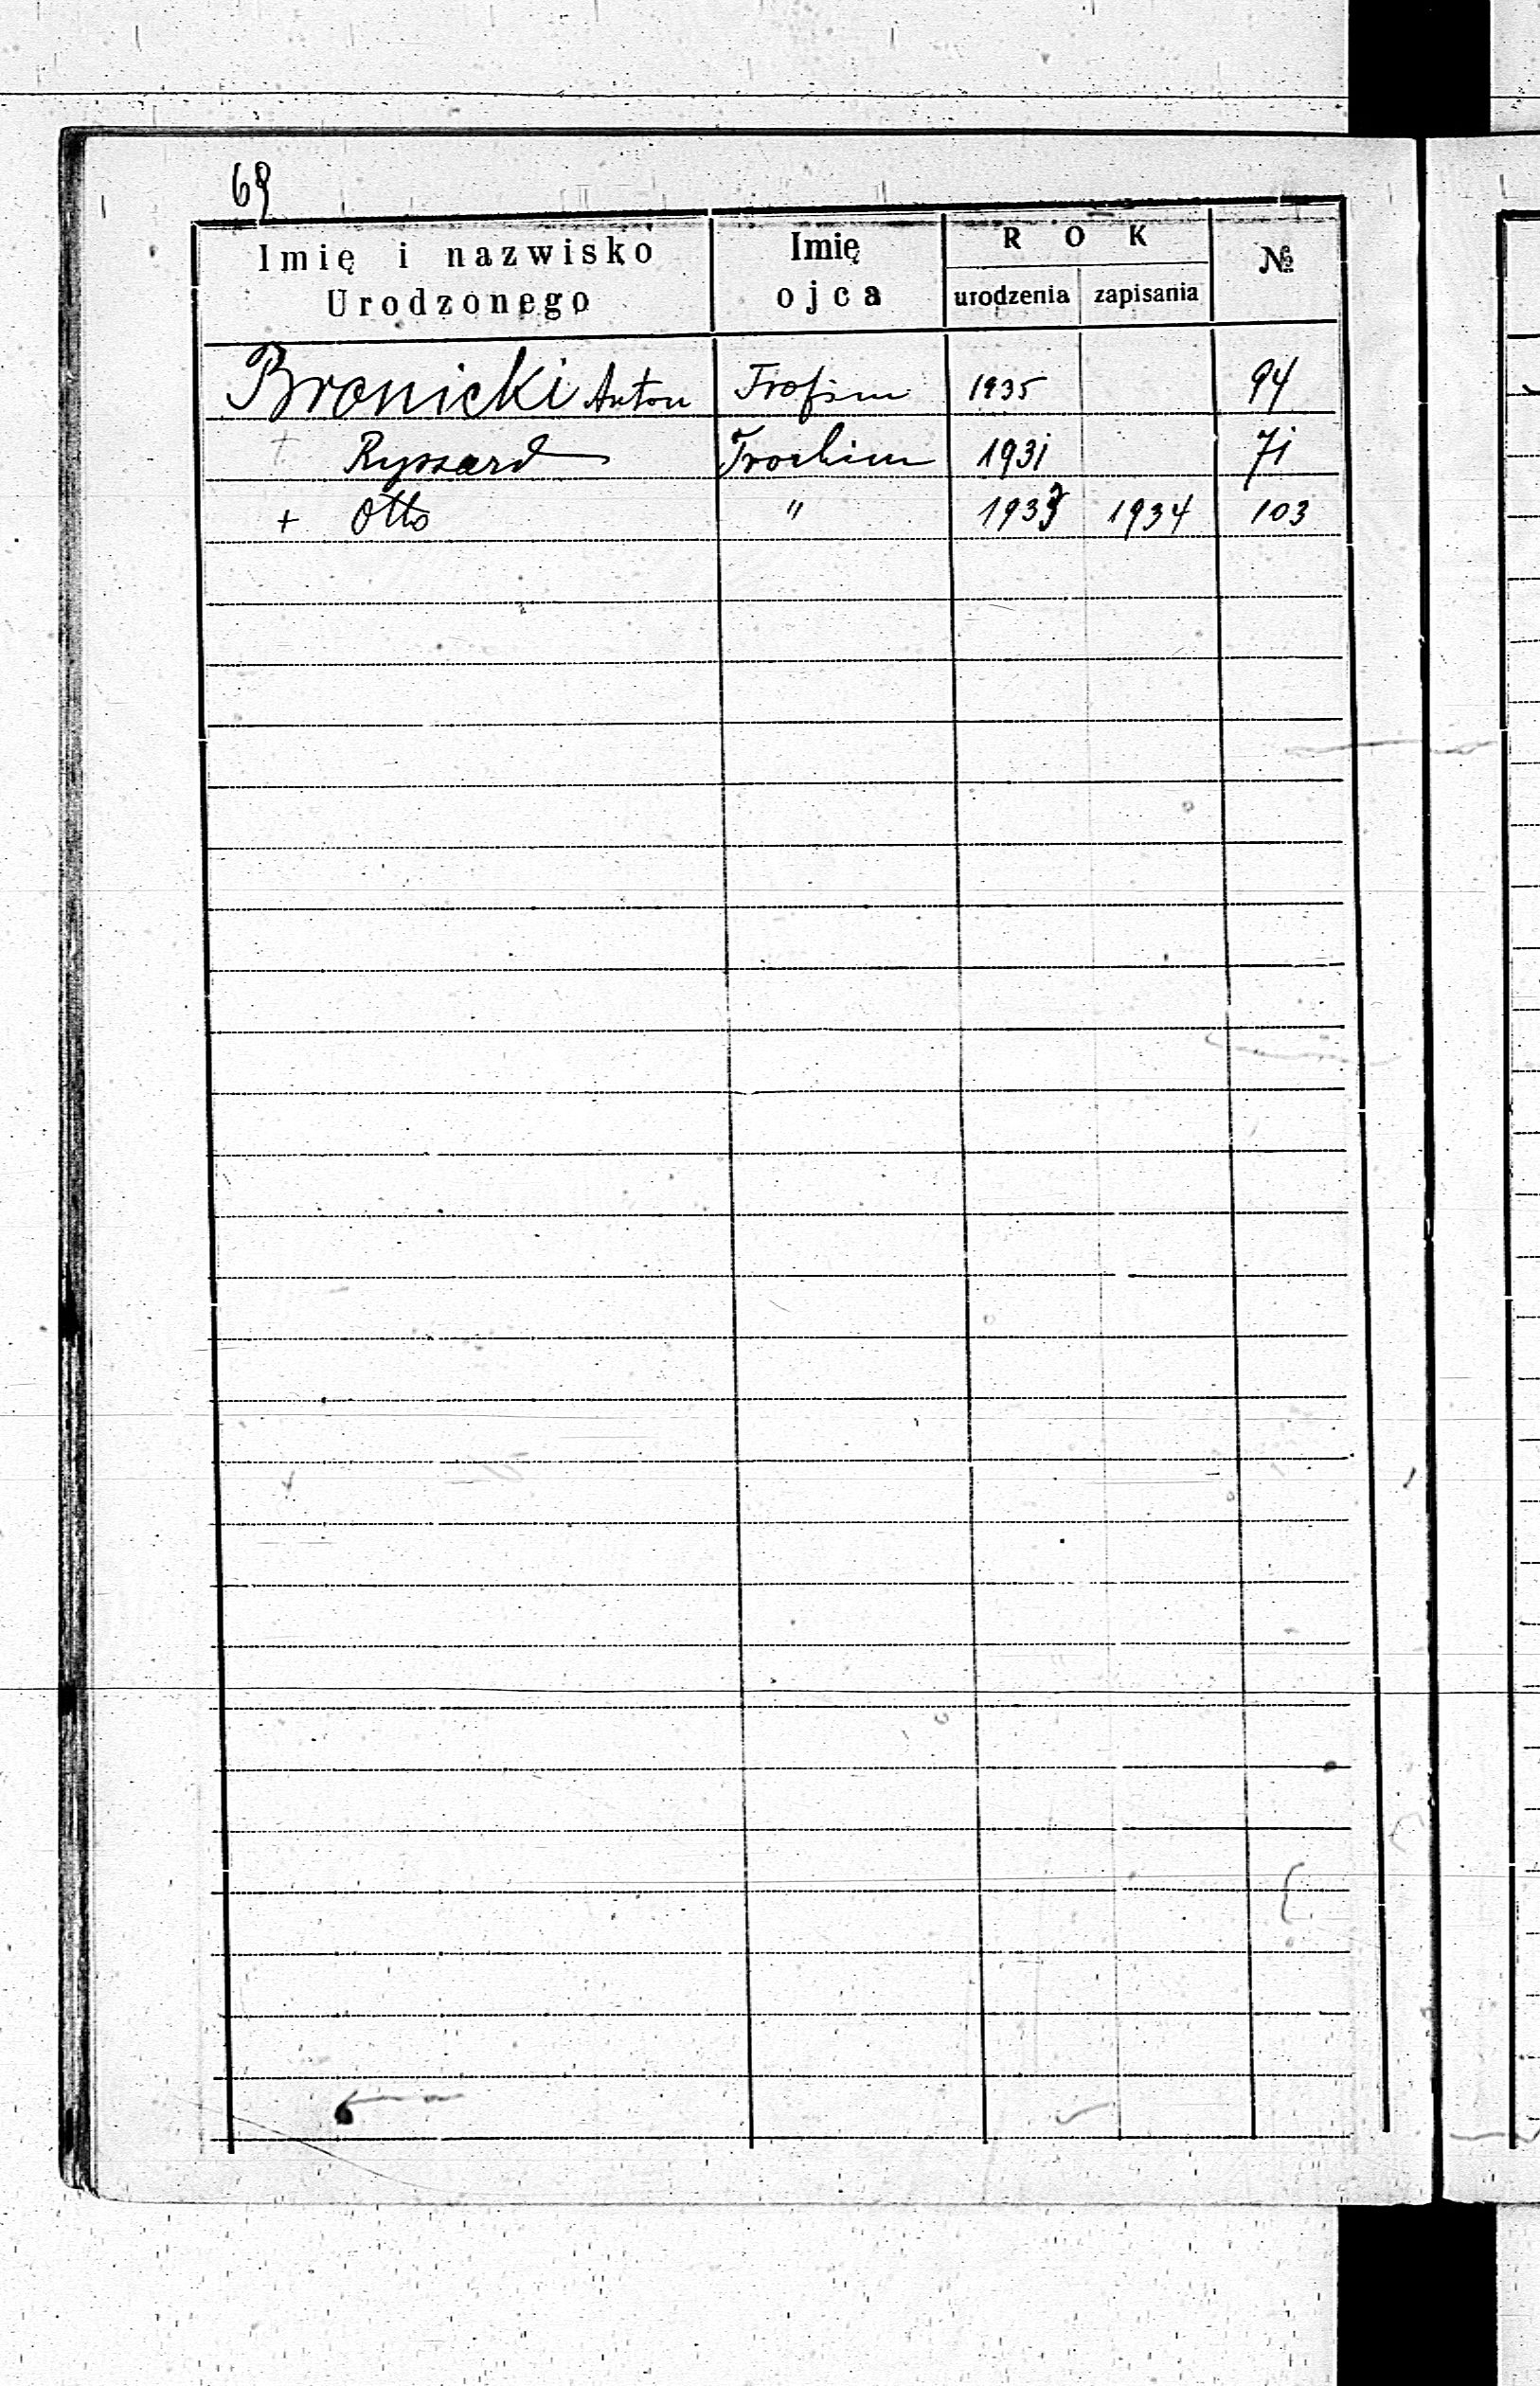 69
Imię i nazwisko Urodzonego | Imię ojca | ROK urodzenia | ROK zapisania | №
Bronicki Anton | Trofim | 1935 | | 94
+ Ryszard | Trochim | 1931 | | 71
+ Otto | " | | 1934 | 103